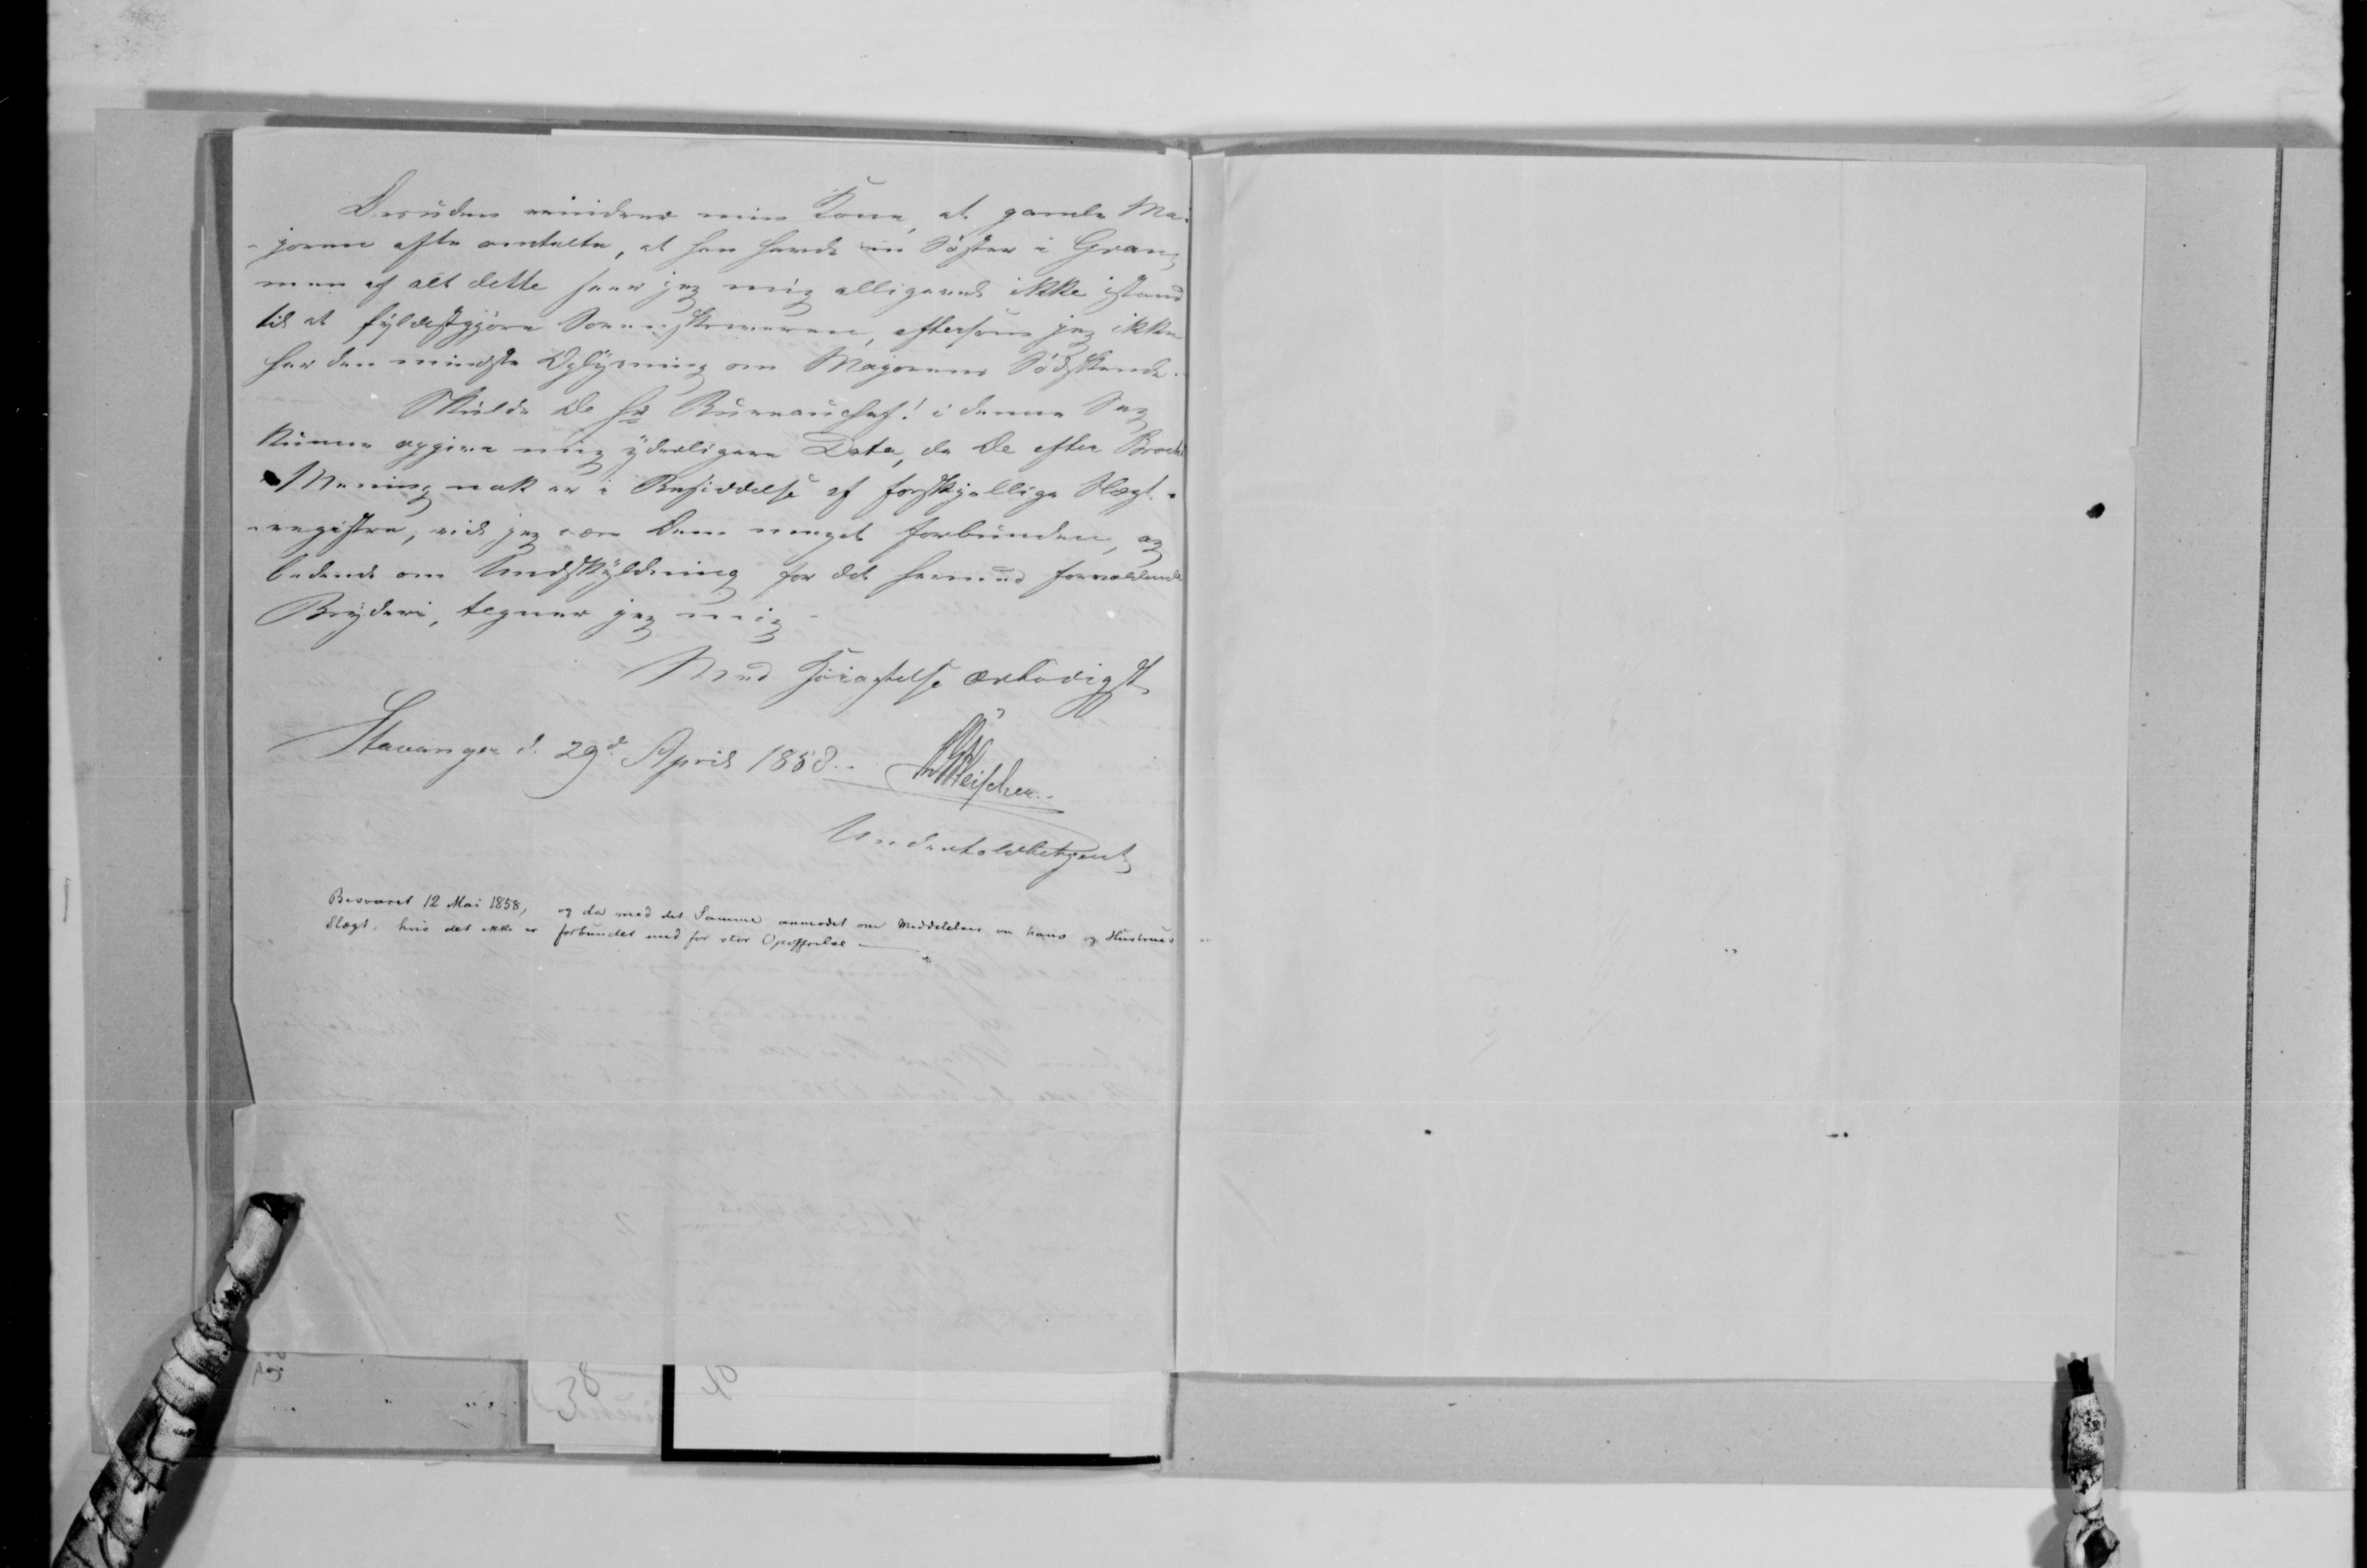 Desuden minder min Kone, at gamle Ma-
-joren ofte omtalte, at han havde en Søster i Gran,
men af alt dette seer jeg mig alligevel ikke istand
til at fyldestgjøre Sorenskriveren, eftersom jeg ikke
har den mindste Oplysning om Majorens Sødskende.
Skulde De Hr Bureauchef! i denne Sag
kunne opgive mig yderligere Data, da De efter Brochs
Mening nok er i Besiddelse af forskjellige Slægt-
-registre, vil jeg være Dem meget forbunden, og
bedende om Undskyldning for det herved forvoldende
Bryderi, tegner jeg mig
Med Høiagtelse ærbødigst
Stavanger d. 29d April 1858.
Fleischer
Undertoldbetjent
Besvaret 12 Mai 1858, og da med det Samme anmodet om Meddelelser om hans og Hustrues
Slægt, hvis det ikke er forbundet med for stor Opoffrelse